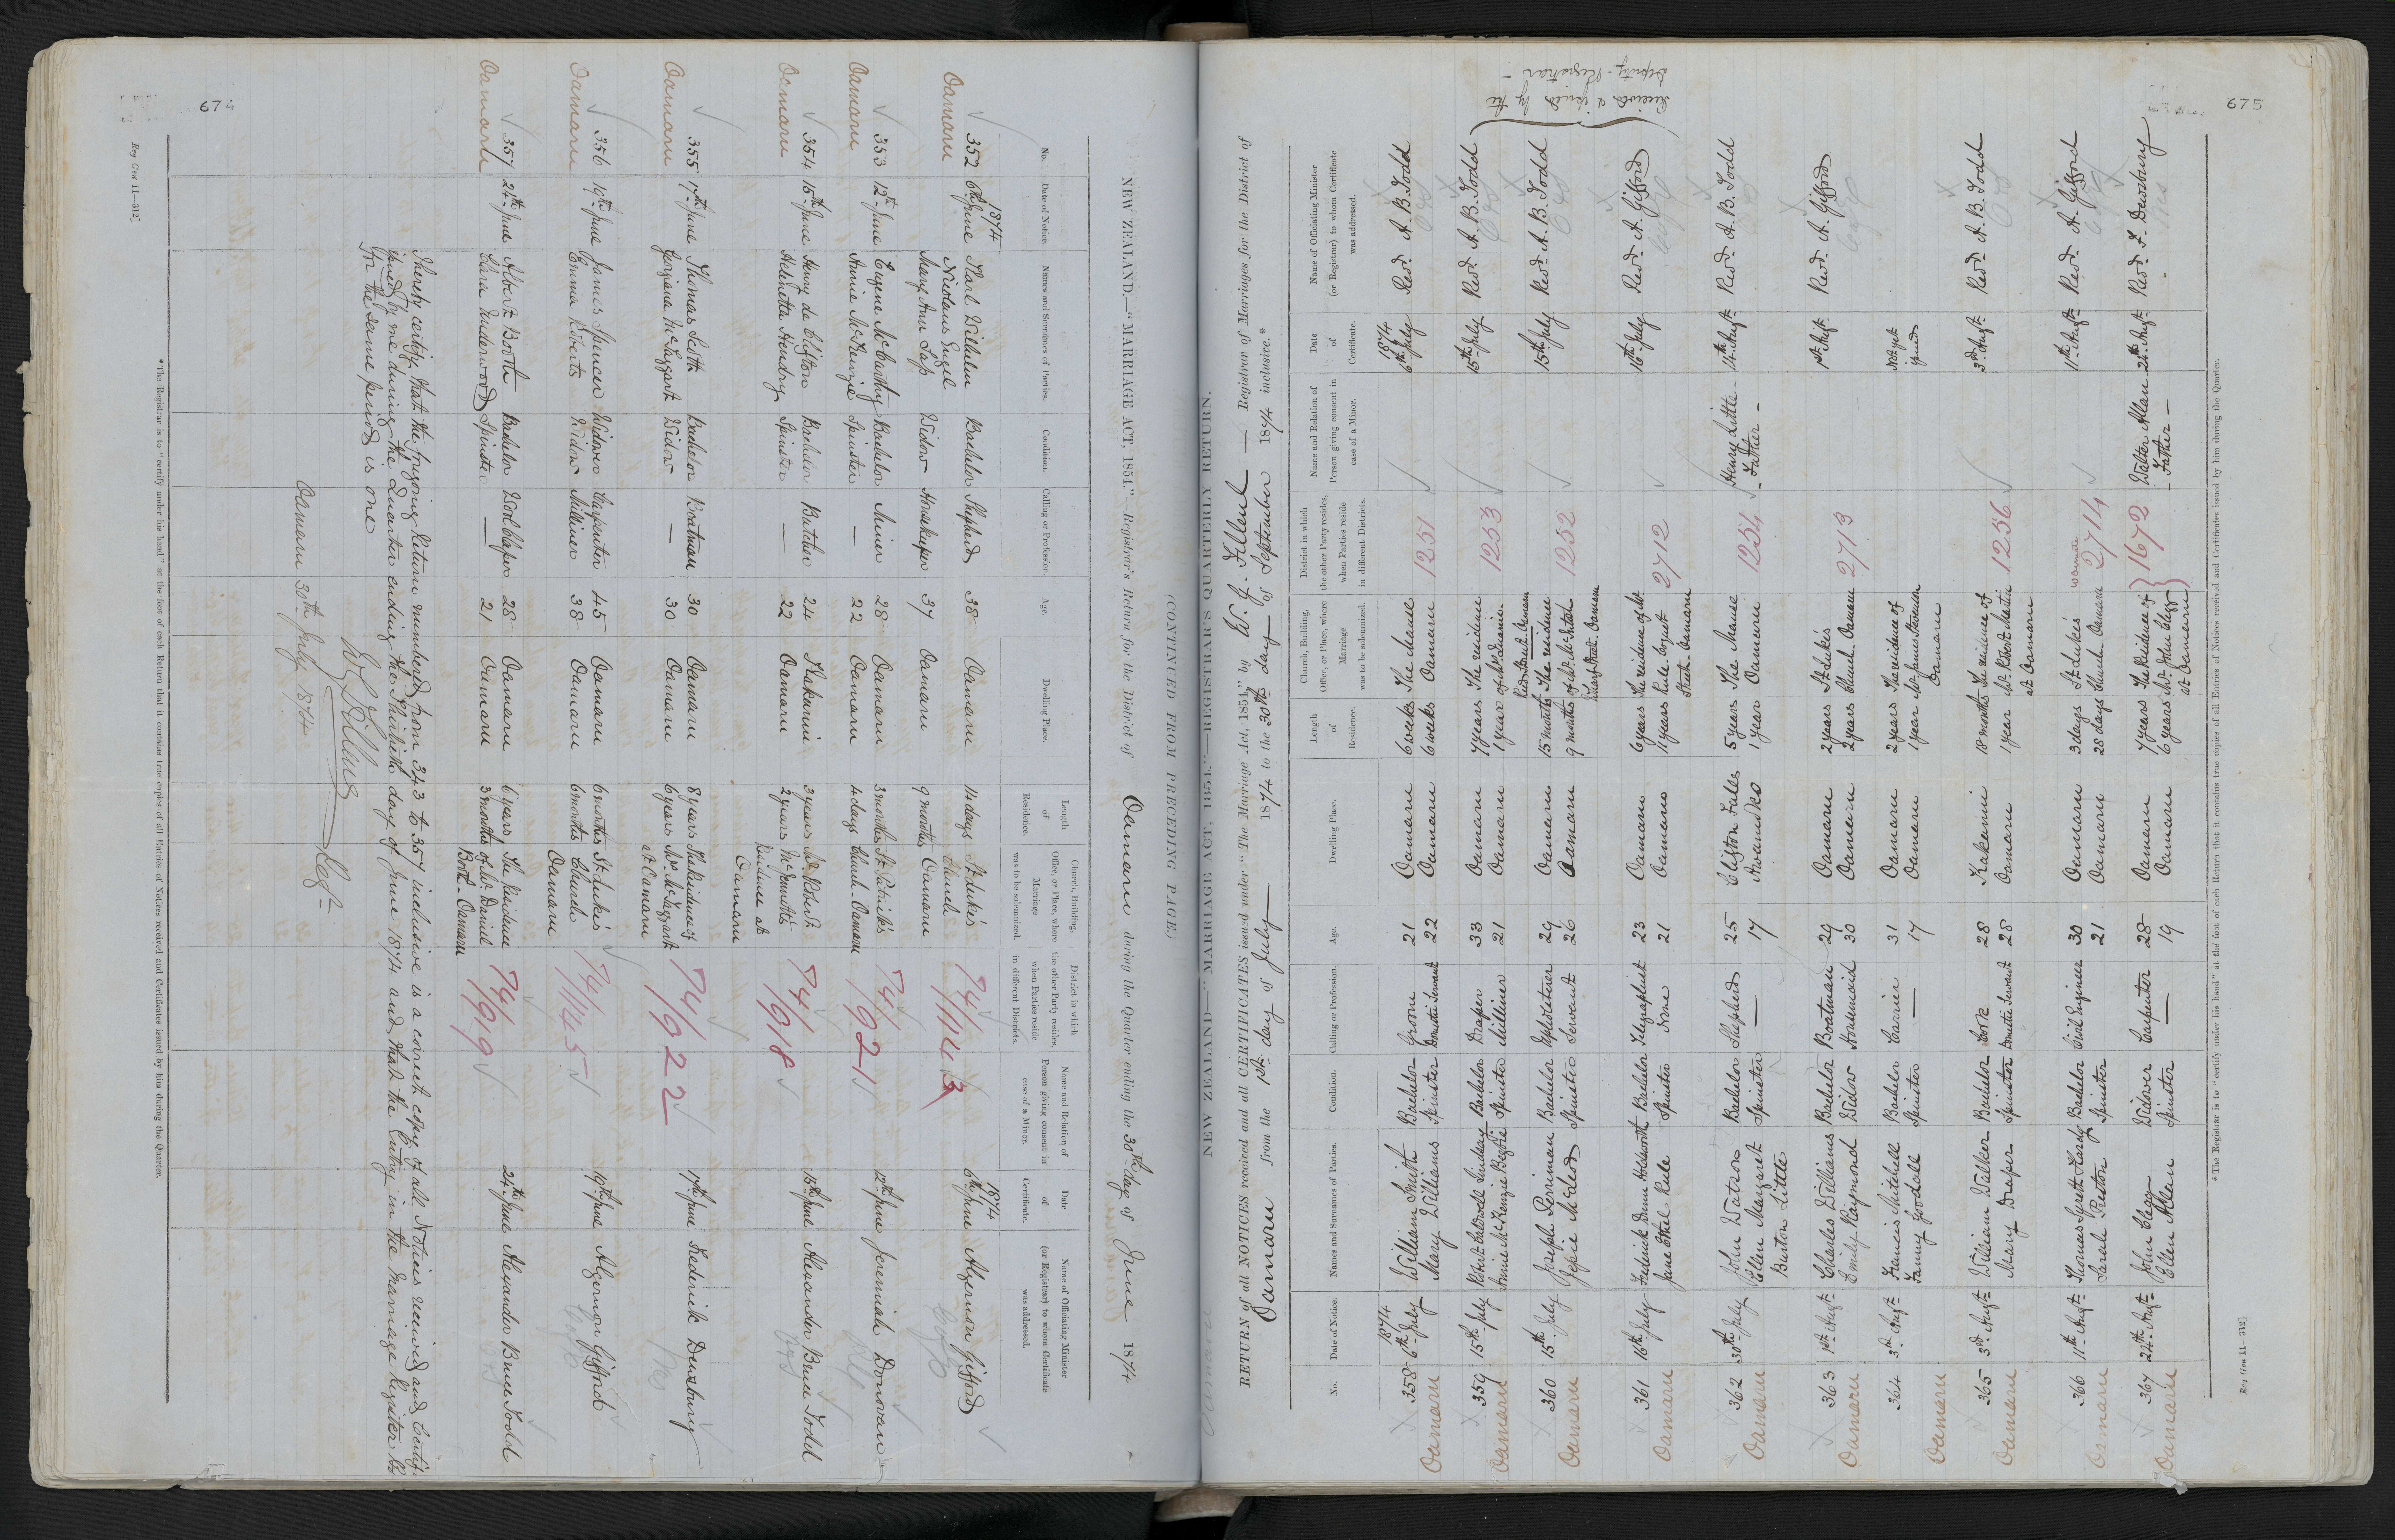 674
[Reg Gen 11—312]
NEW ZEALAND.—"MARRIAGE ACT, 1854."—Registrar's Return for the District of Oamaru during the Quarter ending the 30th day of June 1874
No.
Date of Notice.
Names and Surnames of Parties.
Condition.
Calling or Profession.
Age.
Dwelling Place.
Length of Residence.
Church, Building, Office, or Place, where Marriage was to be solemnized.
District in which the other Party resides, when Parties reside in different Districts.
Name and Relation of Person giving consent in case of a Minor.
Date of Certificate.
Name of Officiating Minister (or Registrar) to whom Certificate was addressed.
1874 1874
352 6th June Karl Wilhelm Bachelor Shepherd 38 Oamaru 14 days St Luke's 74/1143 6th June Algernon Gifford
Oamaru Nicolaus Engel Church
Mary Ann Lapp Widow Housekeeper 37 Oamaru 9 months Oamaru
353 12th June Eugene McCarthy Bachelor Miner 28 Oamaru 3 months St Patrick's 74/921 12th June Jeremiah Donovan
Oamaru Annie McKenzie Spinster — 22 Oamaru 4 days Church Oamaru
354 15th June Henry de Clifton Bachelor Butcher 24 Kakanui 3 years Mr Robert 74/918 15th June Alexander Bruce Todd
Oamaru Helenetta Hendry Spinster — 22 Oamaru 2 years McDermott's
Residence at
Oamaru
355 17th June Thomas Scott Bachelor Boatman 30 Oamaru 8 years The Residence of 74/922 17th June Frederick Dewsbury
Oamaru Georgiana McTaggart Widow — 30 Oamaru 6 years Mr McTaggart
at Oamaru
356 19th June James Spencer Widower Carpenter 45 Oamaru 6 months St Luke's 74/1145 19th June Algernon Gifford
Oamaru Emma Roberts Widow Milliner 38 Oamaru 6 months Church
Oamaru
357 24th June Albert Booth Bachelor Woolclasser 28 Oamaru 6 years The Residence 74/919 24th June Alexander Bruce Todd
Oamaru Clara Underwood Spinster — 21 Oamaru 3 months of Mr Daniel
Booth Oamaru
I hereby certify that the foregoing Return numbered from 343 to 357 inclusive is a correct copy of all Notices received and Certif-
issued by me during the Quarter ending the Thirtieth day of June 1874 and that the Entry in the Marriage Register Bk
for the same period is one
W J Filleul Regr
Oamaru 30th July 1874
*The Registrar is to "certify under his hand" at the foot of each Return that it contains true copies of all Entries of Notices received and Certificates issued by him during the Quarter.
675
(CONTINUED FROM PRECEDING PAGE)
NEW ZEALAND—"MARRIAGE ACT, 1854."—REGISTRAR'S QUARTERLY RETURN.
RETURN of all NOTICES received and all CERTIFICATES issued under "The Marriage Act, 1854," by W. J. Filleul — Registrar of Marriages for the District of
Oamaru from the 1st day of July 1874 to the 30th day of September 1874 inclusive.*
No.
Date of Notice.
Names and Surnames of Parties.
Condition.
Calling or Profession.
Age.
Dwelling Place.
Length of Residence.
Church, Building, Office, or Place, where Marriage was to be solemnized.
District in which the other Party resides, when Parties reside in different Districts.
Name and Relation of Person giving consent in case of a Minor.
Date of Certificate.
Name of Officiating Minister (or Registrar) to whom Certificate was addressed.
1874 1874
358 6th July William Smith Bachelor Groom 21 Oamaru 6 weeks The Manse 1251 6th July Revd A. B. Todd
Oamaru Mary Williams Spinster Domestic Servant 22 Oamaru 6 weeks Oamaru
359 15th July Robert Chadwell Lindsay Bachelor Draper 33 Oamaru 7 years The residence 1253 15th July Revd A. B. Todd
Oamaru Annie McKenzie Begbie Spinster Milliner 21 Oamaru 1 year of Mr Dennis
Reed Street Oamaru
360 15th July Joseph Perriman Bachelor Upholsterer 29 Oamaru 15 months The residence 1252 15th July Revd A. B. Todd
Oamaru Jessie McLeod Spinster Servant 26 Oamaru 9 months of Mr McIntosh
Wharf Street Oamaru
Receives a quire by the
Deputy-Registrar—
361 16th July Frederick Dunn Holdsworth Bachelor Telegraphist 23 Oamaru 6 years The residence of Mr 2712 16th July Revd A. Gifford
Oamaru Jane Ethel Rule Spinster None 21 Oamaru 11 years Rule
Street Oamaru
362 30th July John Watson Bachelor Shepherd 25 Clifton Falls 5 years The Manse 1254 Henry Little Augt Revd A. B. Todd
Oamaru Ellen Margaret Spinster — 17 Awamoko 1 year Oamaru —Father—
Burton Little
363 1st Augt Charles Williams Bachelor Boatman 29 Oamaru 2 years St Luke's 2713 1st Augt Revd A. Gifford
Oamaru Emily Raymond Widow Housemaid 30 Oamaru 2 years Church Oamaru
364 3rd Augt Francis Mitchell Bachelor Carrier 31 Oamaru 2 years The residence of Not yet
Oamaru Fanny Goodall Spinster — 17 Oamaru 1 year Mr James issued
Oamaru
365 3rd Augt William Walker Bachelor 28 Kakanui 18 months The residence of 1256 3rd Augt Revd A. B. Todd
Oamaru Mary Draper Spinster Domestic Servant 28 Oamaru 1 year Mr Robert Martin
at Oamaru
366 11th Augt Thomas Lyrett Hardy Bachelor Civil Engineer 30 Oamaru 3 days St Luke's 2714 11th Augt Revd A. Gifford
Oamaru Sarah Preston Spinster 21 Oamaru 28 days Church Oamaru Waimate
367 22th Augt John Clegg Widower Carpenter 28 Oamaru 7 years The Residence of 1672 Walter Allan 22th Augt Revd F. Dewsbury
Oamaru Ellen Allan Spinster — 19 Oamaru 6 years Mr John Clegg —Father—
at Oamaru
*The Registrar is to "certify under his hand" at the foot of each Return that it contains true copies of all Entries of Notices received and Certificates issued by him during the Quarter.
Reg Gen 11—312]